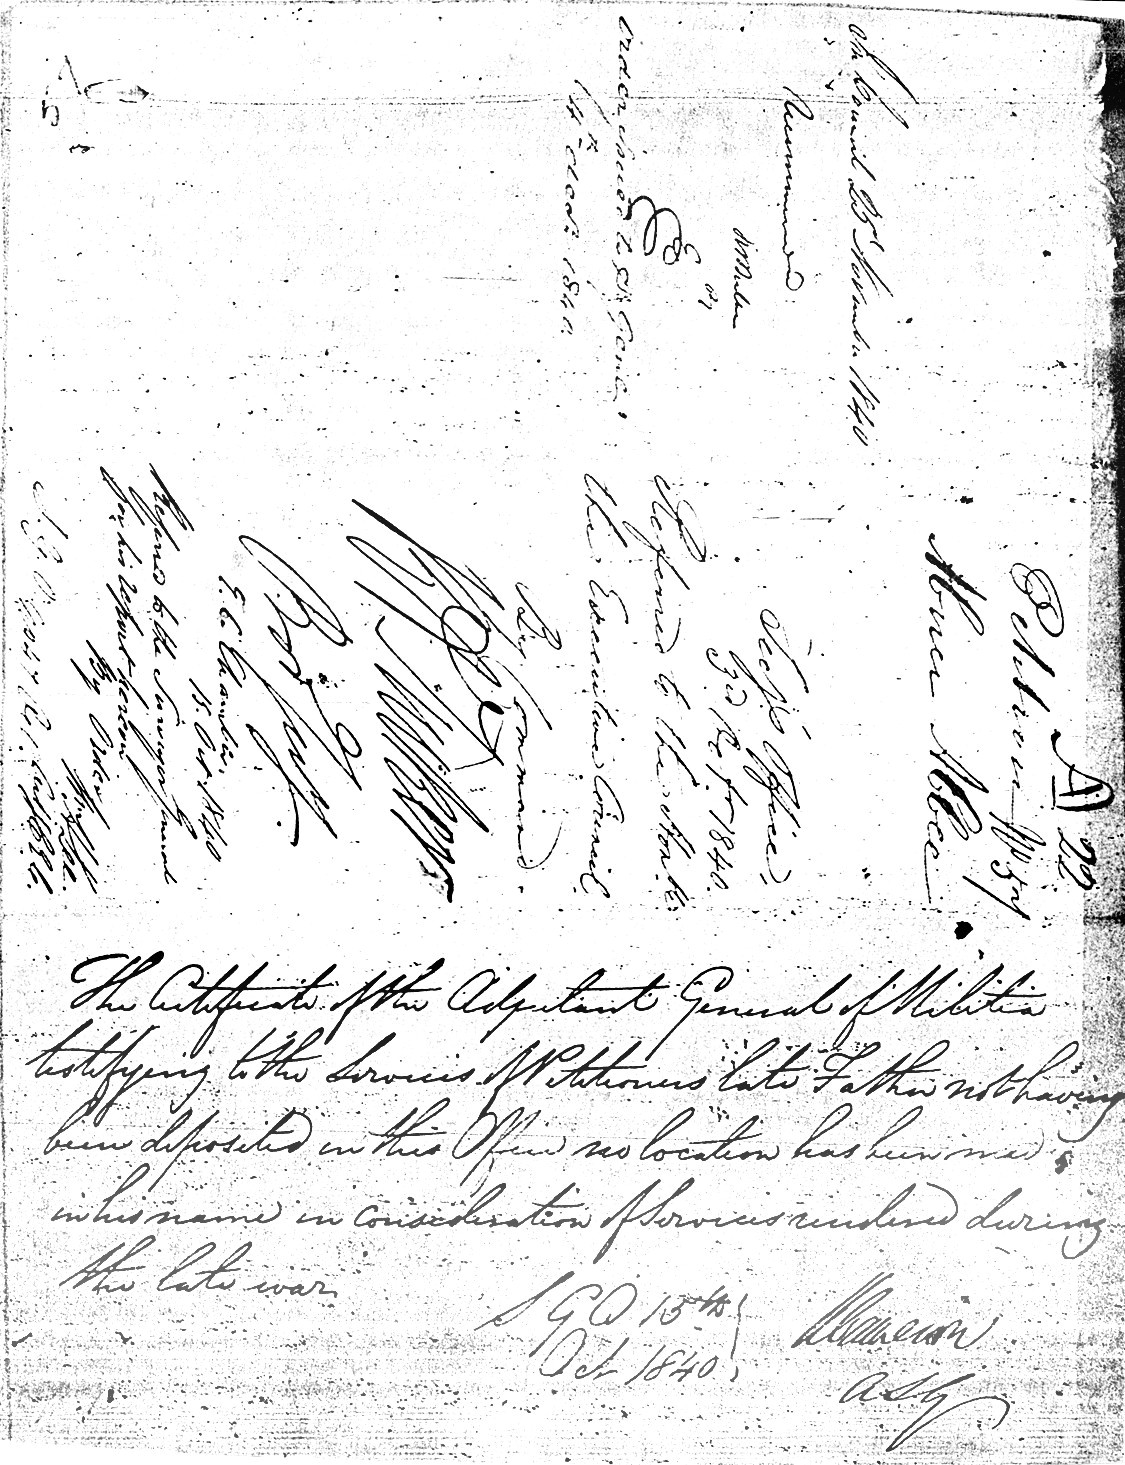 In Council 25th November 1840
Recommended
order issued to St. George
14th Decr. 1840.
A 22
Petition No 57
Abner
Secy's Office
3rd Sept 1840.
Referred to the Honble
the Executive Council
By Command.
E. C. Chamber,
15. Oct. 1840
Referred to the Surveyor General
for his report hereon
By Order
The Certificate of the Adjutant General of Militia
testifying to the Services of Petitioners late Father not having
been deposited in this Office no location has been made
in his name in consideration of Services rendered during
the late war
S G O 15th
Oct 1840
A S G
57